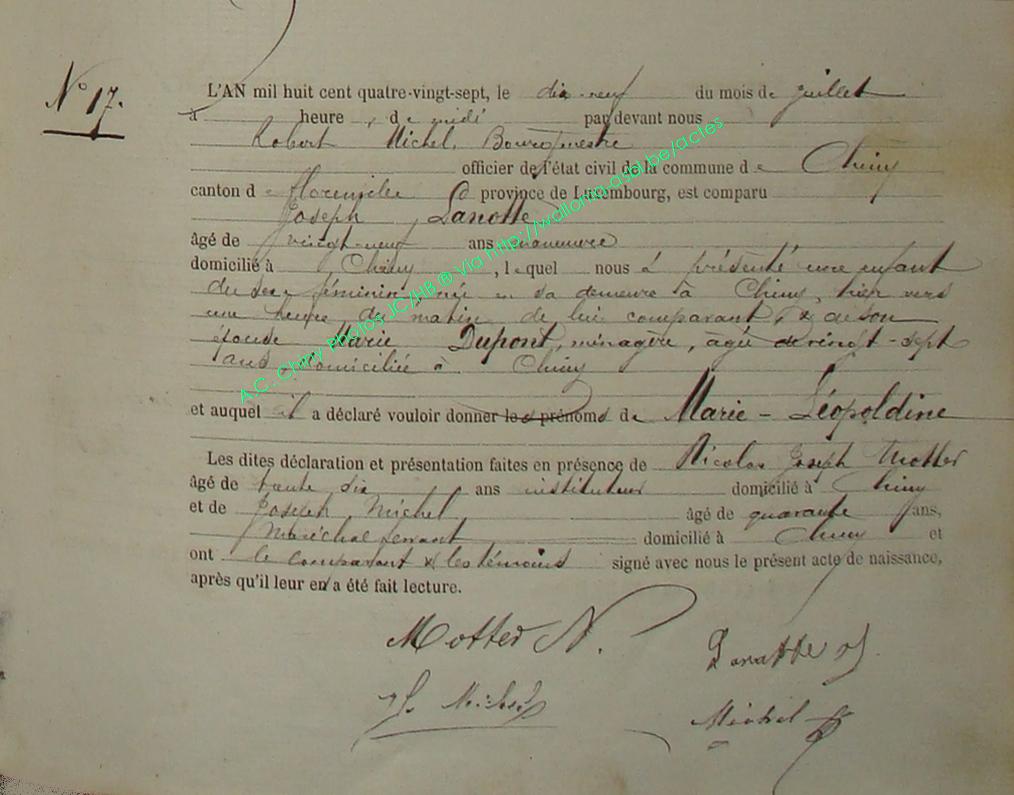 N° 17.
L'AN mil huit cent quatre-vingt-sept, le dix-neuf du mois de juillet
à heure , de midi par devant nous
Robert Michel, Bourgmestre
officier de l'état civil de la commune de Chiny
canton de florenville province de Luxembourg, est comparu
Joseph Lanotte
âgé de vingt-neuf ans manœuvre
domicilié à Chiny , lequel nous à présenté une enfant
du sexe féminin née en sa demeure à Chiny, hier vers
une heure du matin de lui comparant, & de son
épouse Marie Dupont, ménagère, âgée de vingt-sept
ans, domiciliée à Chiny
et auquel il a déclaré vouloir donner les prénoms de Marie - Léopoldine
Les dites déclaration et présentation faites en présence de Nicolas Joseph Motter
âgé de trente six ans instituteur domicilié à Chiny
et de Joseph Michel âgé de quarante ans,
Maréchal ferrant domicilié à Chiny et
ont le comparant & les témoins signé avec nous le présent acte de naissance,
après qu'il leur en a été fait lecture.
Motter N.
Lanotte J.
J. Michel
Michel
A.C. Chiny Photos JC/HB ® Via http://wallonia.asbl.be/actes